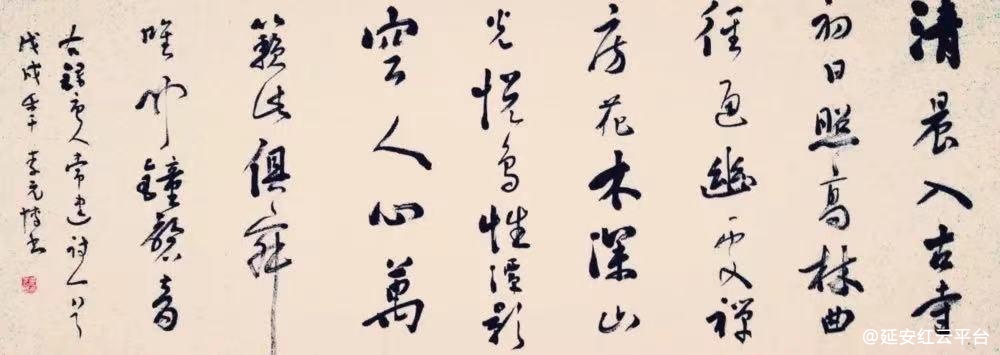 清晨入古寺
初日照高林曲
徑通幽處禅
房花木深山
光悦鸟性潭影
空人心萬
籁此俱寂
唯闻鐘磬音
右録唐人常建诗一首
戊戌年 李元博书
@延安红云平台